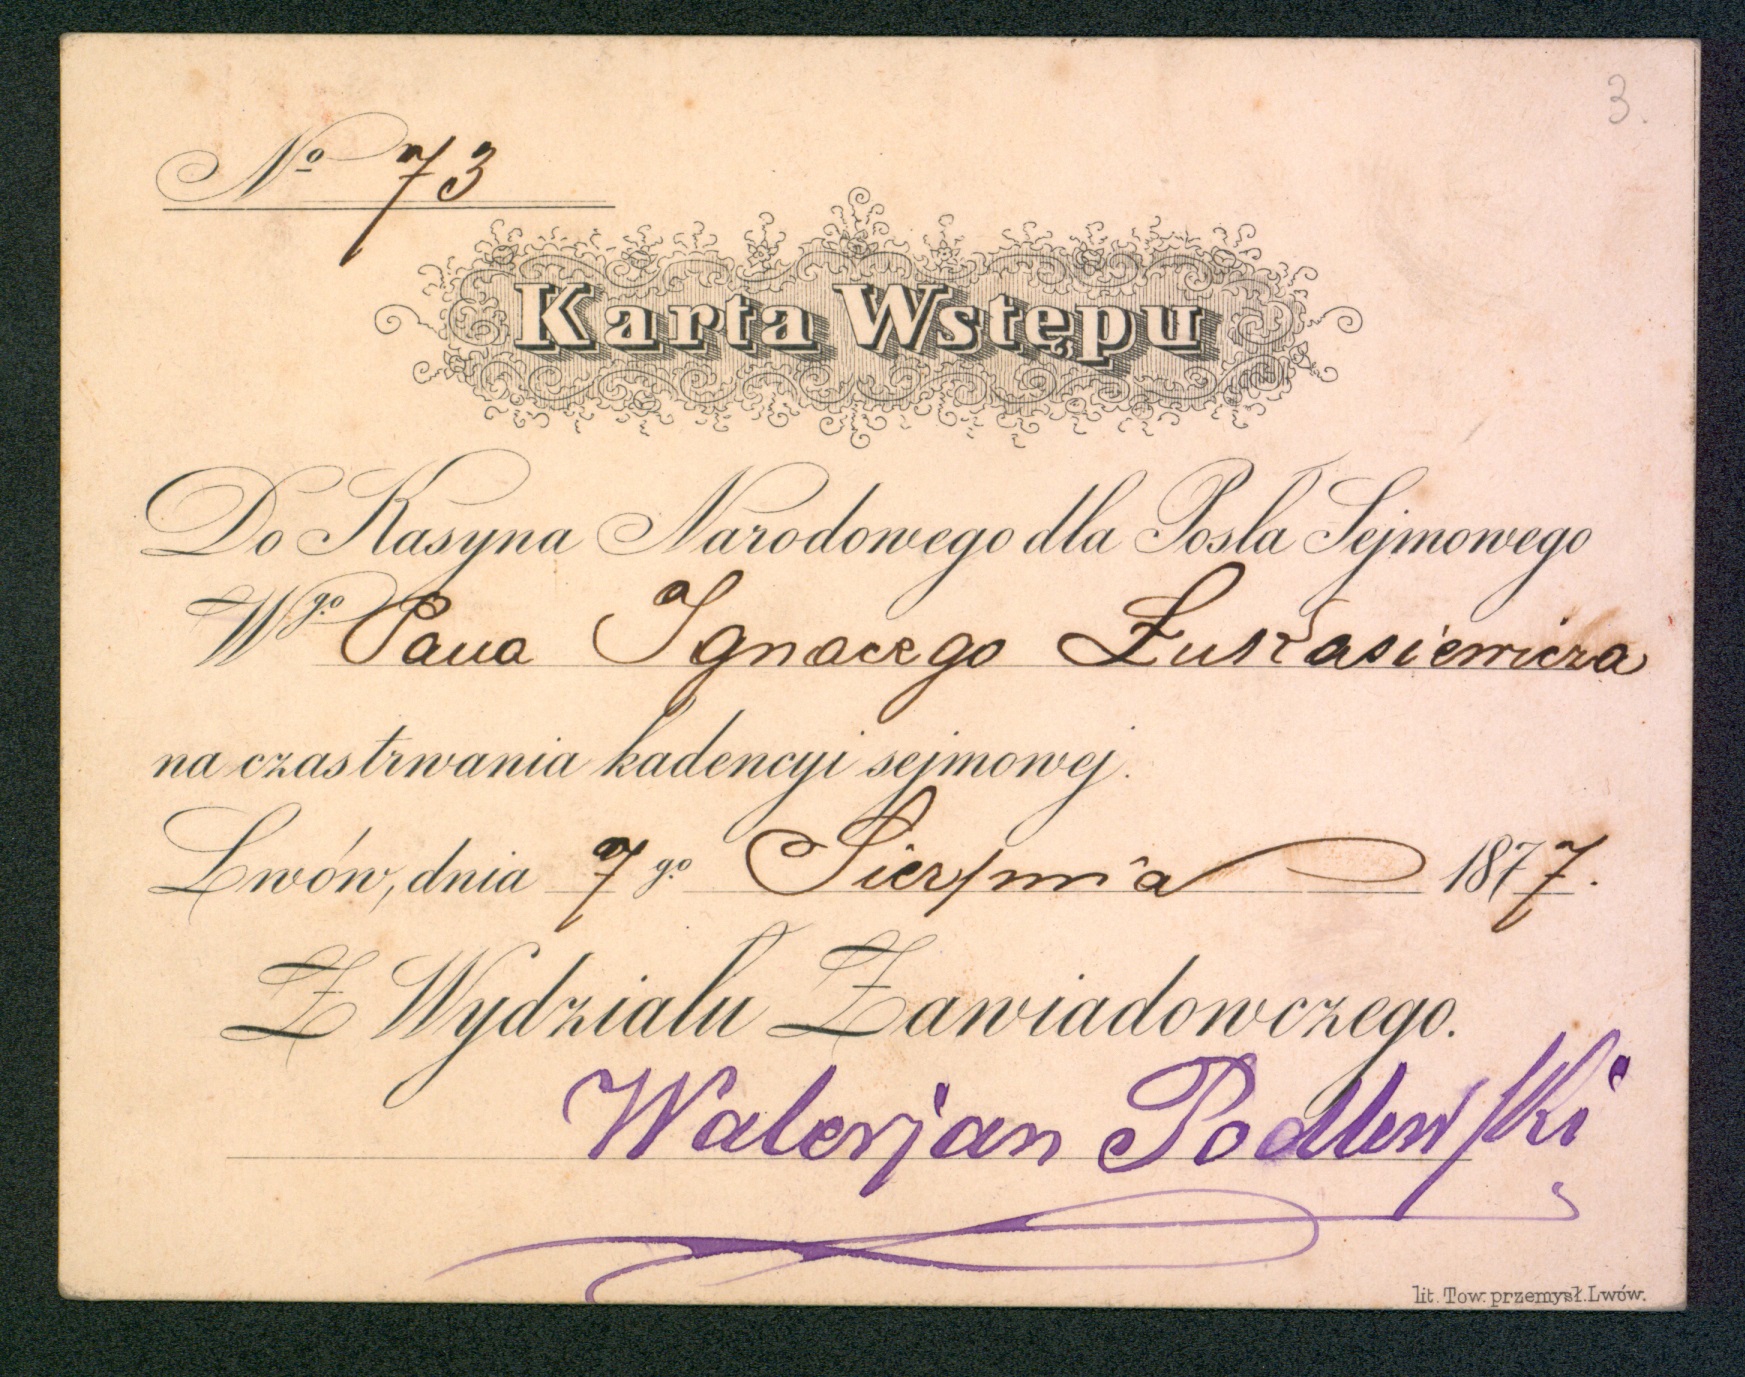 3.
No 73
Karta Wstępu
Do Kasyna Narodowego dla Posła Sejmowego
Wgo Pana Ignacego Łukasiewicza
na czas trwania kadencyi sejmowej.
Lwów, dnia 7go Sierpnia 1877.
Z Wydziału Zawiadowczego.
Walerjan Podlewski
lit. Tow. przemysł. Lwów.